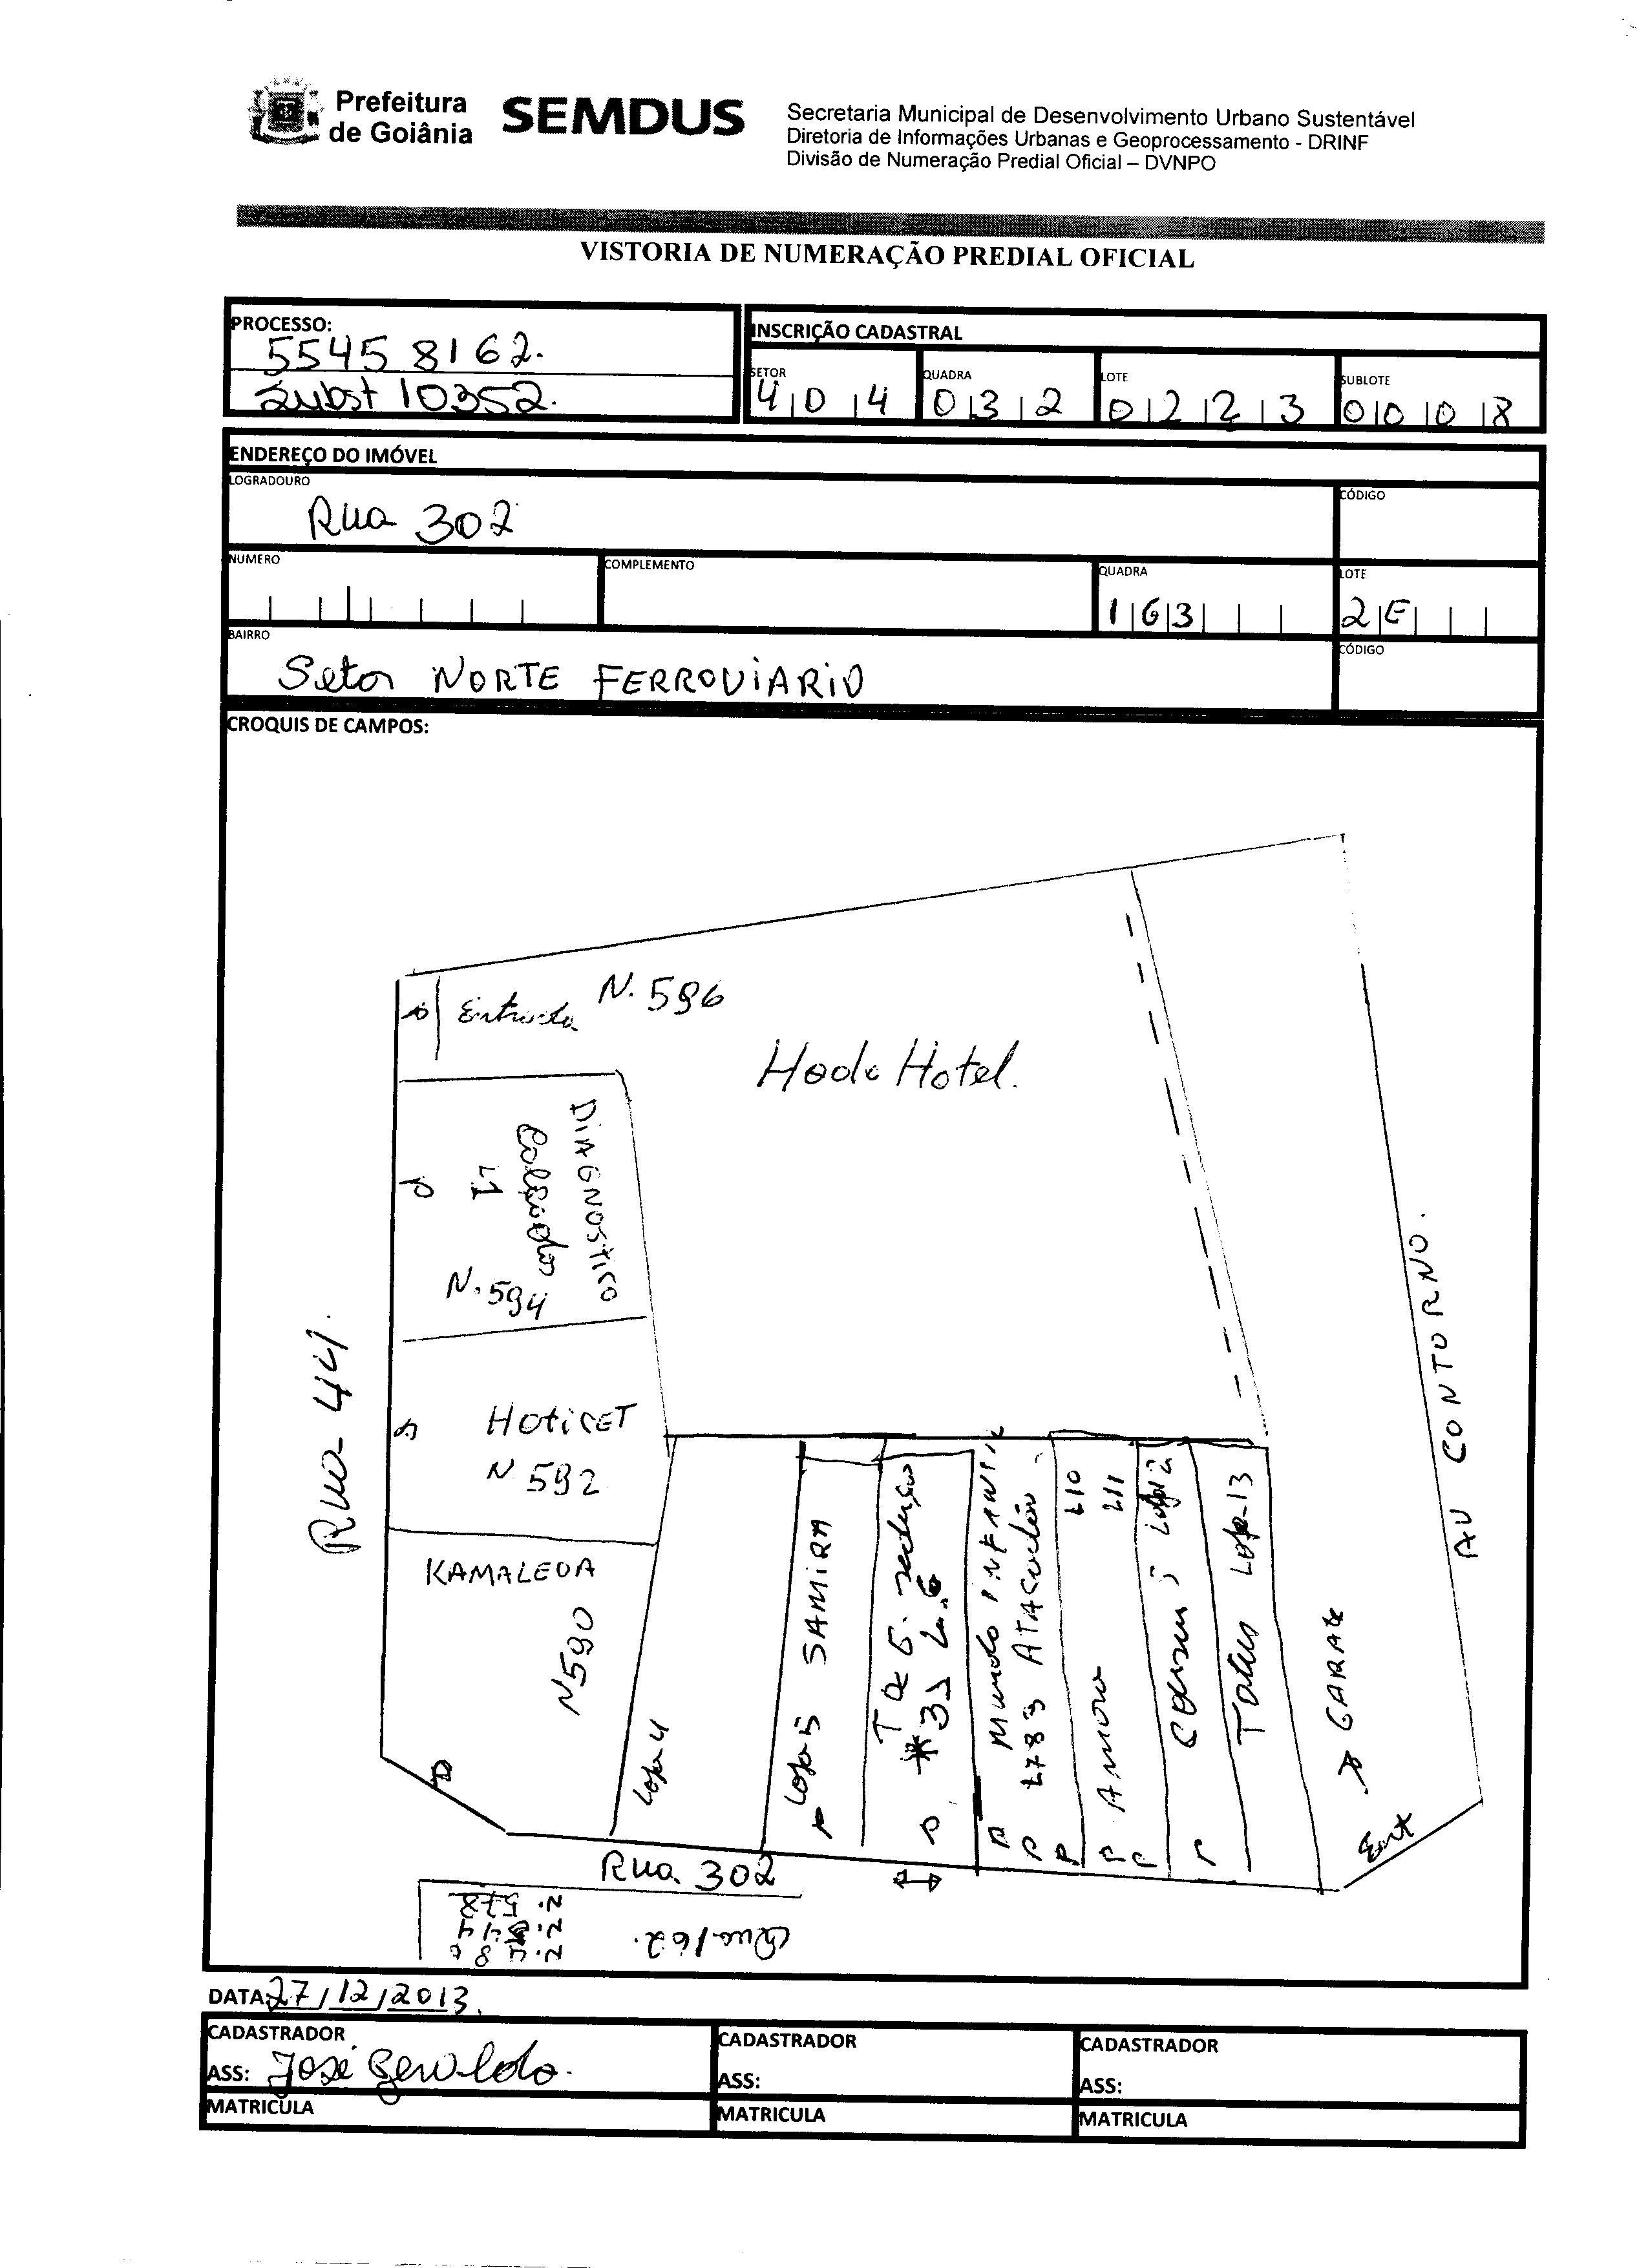 Prefeitura
de Goiânia
SEMDUS
Secretaria Municipal de Desenvolvimento Urbano Sustentável
Diretoria de Informações Urbanas e Geoprocessamento - DRINF
Divisão de Numeração Predial Oficial – DVNPO
VISTORIA DE NUMERAÇÃO PREDIAL OFICIAL
PROCESSO:
5545 8162.
Subst 10352.
INSCRIÇÃO CADASTRAL
SETOR
4 0 4
QUADRA
0 3 2
LOTE
0 2 2 3
SUBLOTE
0 0 0 8
ENDEREÇO DO IMÓVEL
LOGRADOURO
Rua 302
CÓDIGO
NUMERO
COMPLEMENTO
QUADRA
163
LOTE
2E
BAIRRO
Setor NORTE FERROVIARIO
CÓDIGO
CROQUIS DE CAMPOS:
Entrada N. 596
Hotel.
DIAGNOSTICO
Calçados
L1
N. 594
Rua 44.
N 592
N590
Loja 4
Loja 5 SAMIRA
Mundo INFANTIL
L789 ATACADÃO
L10
L11
Loja 12
Loja 13
AV CONTORNO.
GARAG
Ent
Rua 302
N. 578
Rua 162.
DATA: 27/12/2013.
CADASTRADOR
ASS: José Geraldo.
MATRICULA
CADASTRADOR
ASS:
MATRICULA
CADASTRADOR
ASS:
MATRICULA